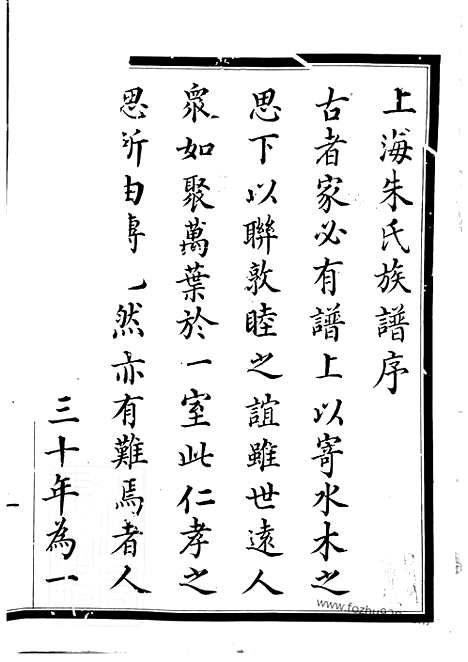 上海朱氏族譜序
古者家必有譜上以寄水木之
思下以聯敦睦之誼雖世遠人
衆如聚萬葉於一室此仁孝之
思所由
然亦有難焉者人
三十年為一
一